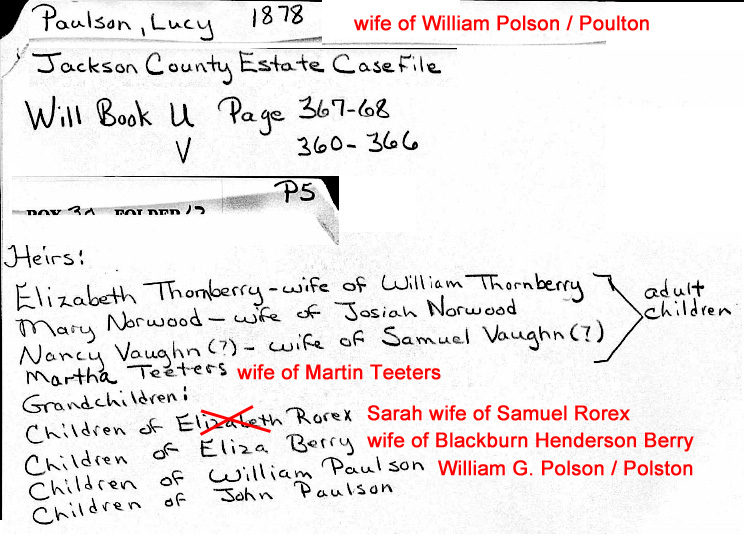 Paulson, Lucy 1878 wife of William Polson / Poulton
Jackson County Estate Case File
Will Book U Page 367-68
V 360-366
P5
BOX 30 FOLDER 12
Heirs:
Elizabeth Thornberry - wife of William Thornberry
Mary Norwood - wife of Josiah Norwood
Nancy Vaughn (?) - wife of Samuel Vaughn (?)
adult children
Martha Teeters wife of Martin Teeters
Grandchildren:
Children of Elizabeth Rorex Sarah wife of Samuel Rorex
Children of Eliza Berry wife of Blackburn Henderson Berry
Children of William Paulson William G. Polson / Polston
Children of John Paulson